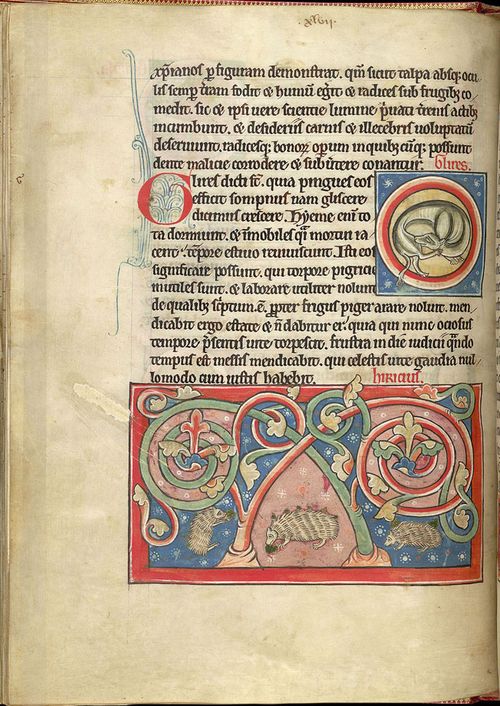 xlvii
xp̄ianos ꝑ figuram demonstrat. qm̄ sicut talpa absq; ocu
lis semꝑ t̄ram fodit & humū egit & radices sub frugib; co
medit. sic & ipsi vere scientie lumine p̄uati t̄renis actib;
incumbunt. & desideriis carnis & illecebris voluptatū
deseruiunt. radicesq; bonoꝝ oꝑum in quib; cūq; possunt
dente malicie corrodere & subūtere conantur. Glires.
Glires dicti st̄. quia pingues eos
efficit sompnus nam gliscere
dicimus crescere. Hyeme eni̅ to
ta dormiunt. & īmobiles qͣi mortui ia
cent. tēpore estiuo reuiuiscunt. Isti eos
significare possunt. qui torpore pigricie
inutiles sunt. & laborare utiliter nolunt
de qualib; sc̄ptum ē. ꝓpter frigus piger arare noluit. men
dicabit ergo estate & n̄ dabitur ei. quia qui nunc ociosus
tempore p̄sentis uite torpescit. frustra in die iudicii qn̄do
tempus est messis mendicabit. qui celestis uite gaudia nul
lomodo cum iustis habebit. hiricius.